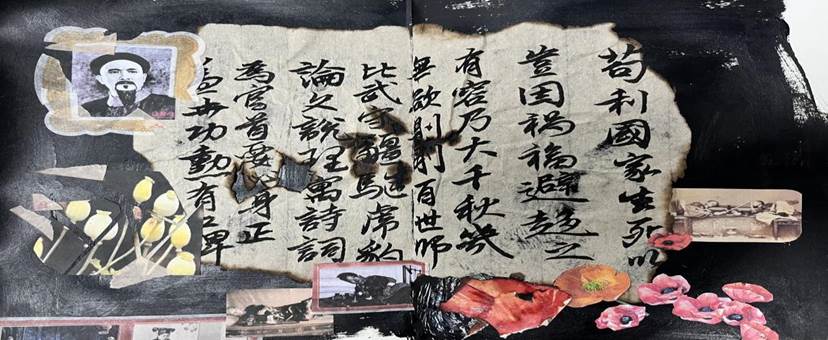 苟利國家生死以
豈因禍福避趨之
有容乃大千秋幾
無欲則剛百世師
比武守疆驅虎豹
論文說理寓詩詞
為官首要心身正
蓋世功勳有口碑